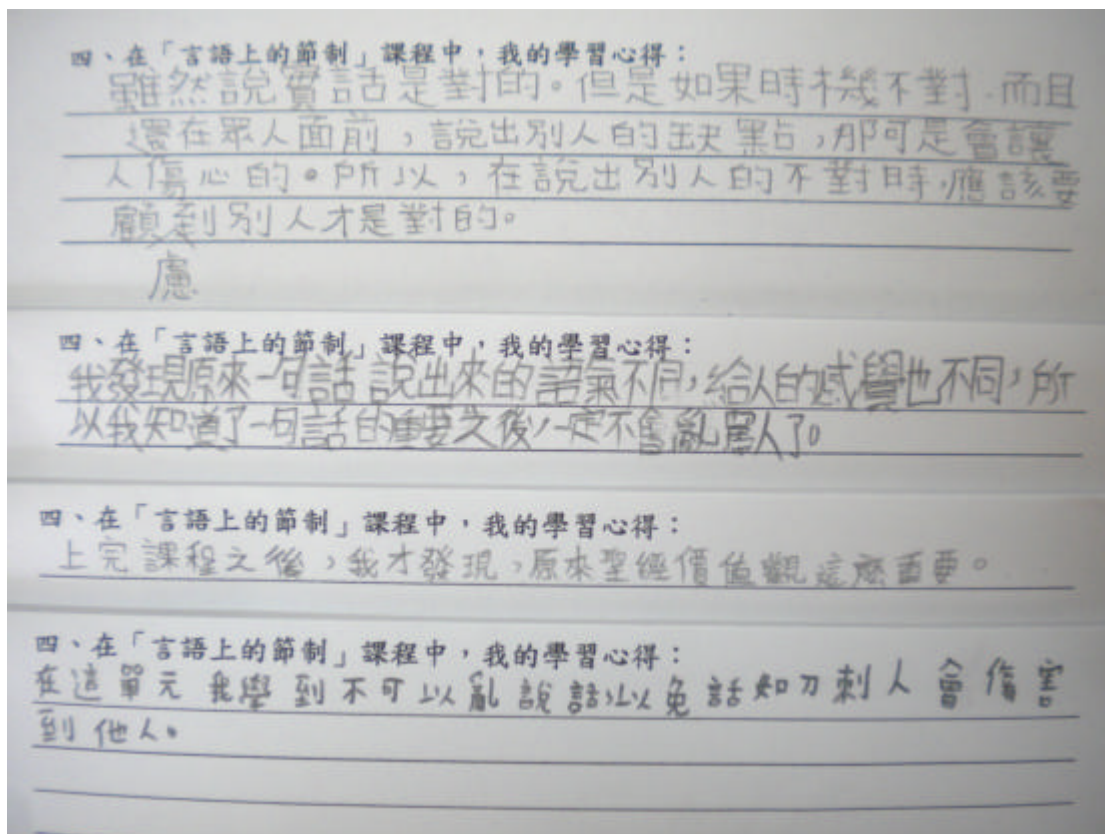 四、在「言語上的節制」課程中，我的學習心得：
雖然說實話是對的。但是如果時機不對．而且
還在眾人面前，說出別人的缺點，那可是會讓
人傷心的。所以，在說出別人的不對時，應該要
顧到別人才是對的。
慮
四、在「言語上的節制」課程中，我的學習心得：
我發現原來一句話說出來的語氣不同，給人的感覺也不同，所
以我知道了一句話的重要之後，一定不會亂罵人了。
四、在「言語上的節制」課程中，我的學習心得：
上完課程之後，我才發現，原來聖經價值觀這麼重要。
四、在「言語上的節制」課程中，我的學習心得：
在這單元我學到不可以亂說話，以免話如刀刺人會傷害
到他人。